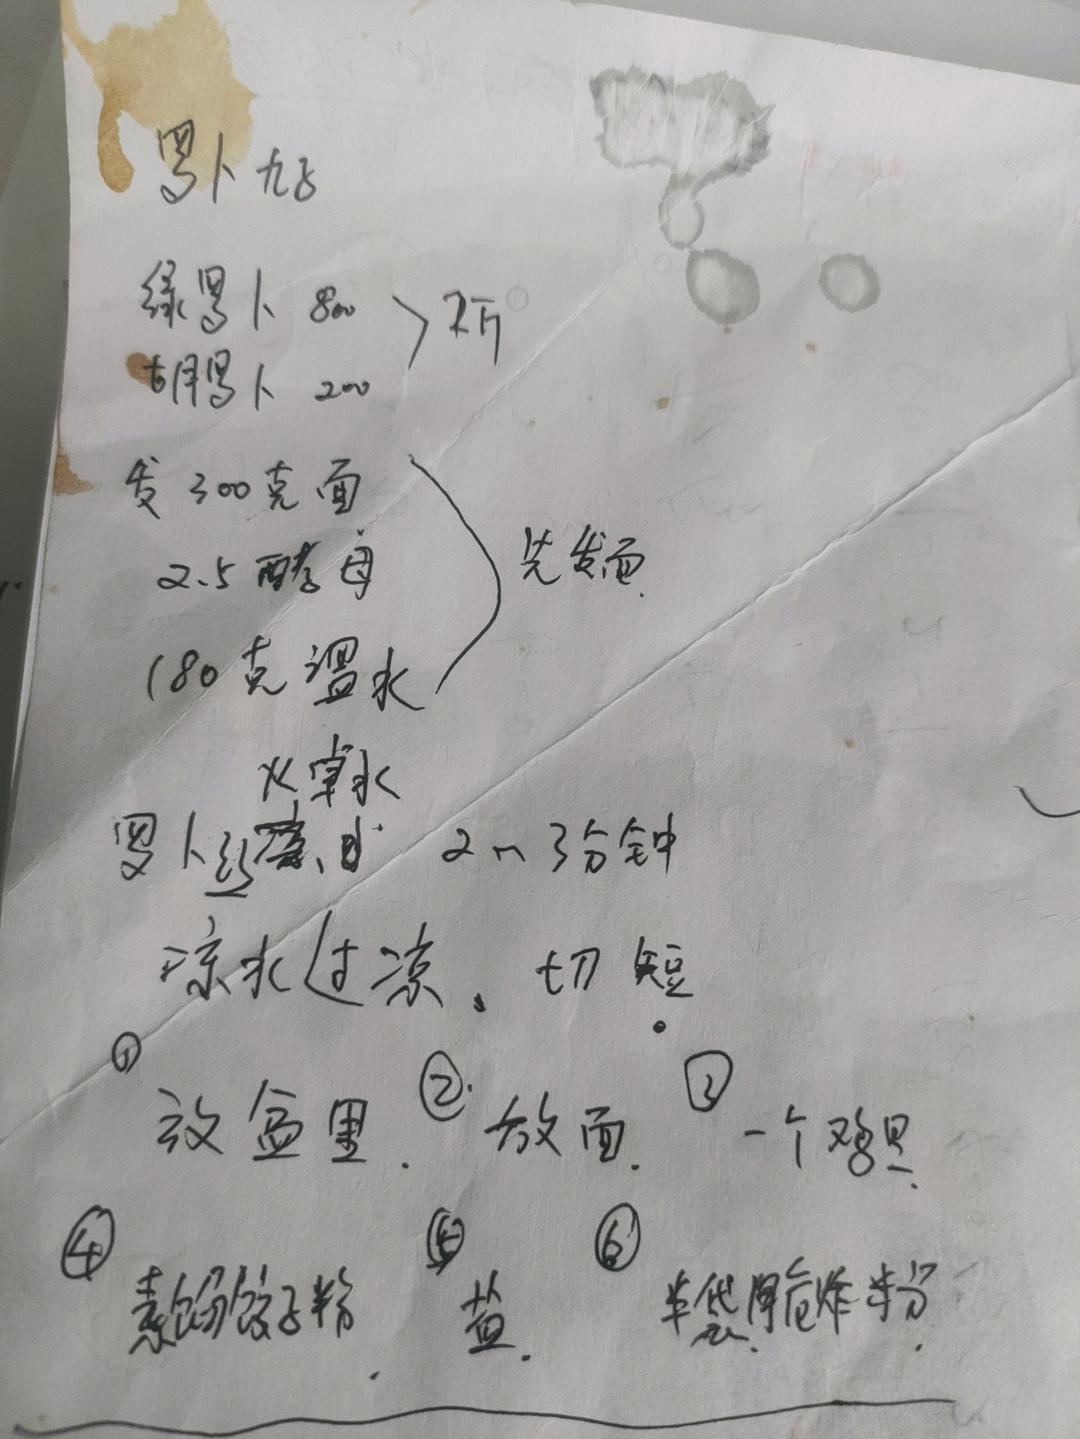 罗卜丸子
绿罗卜 800
胡罗卜 200
2斤
发 300克面
2.5 酵母
180克温水
先发面.
焯水
罗卜丝 2~3分钟
凉水过凉、切短.
① 放盆里. ② 放面. ③ 一个鸡旦.
④ 素馅饺子粉. ⑤ 盐. ⑥ 半袋脆炸粉.